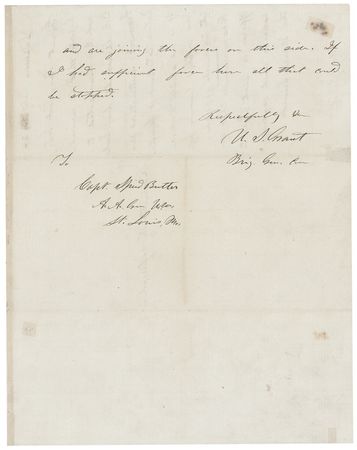 and are joining the forces on this side. If
I had sufficient force here all that could
be stopped.
Respectfully &c
U. S. Grant
Brig. Gen. Com
To
Capt. Speed Butler
A. A. Gen. 
St. Louis, Mo.